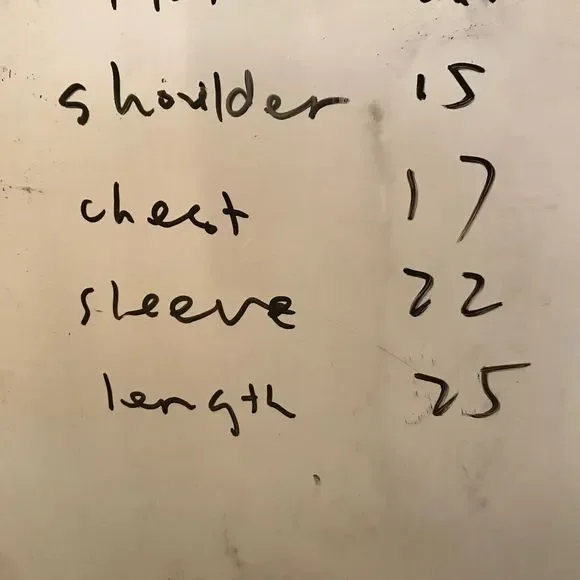 shoulder 15
chest 17
sleeve 22
length 25